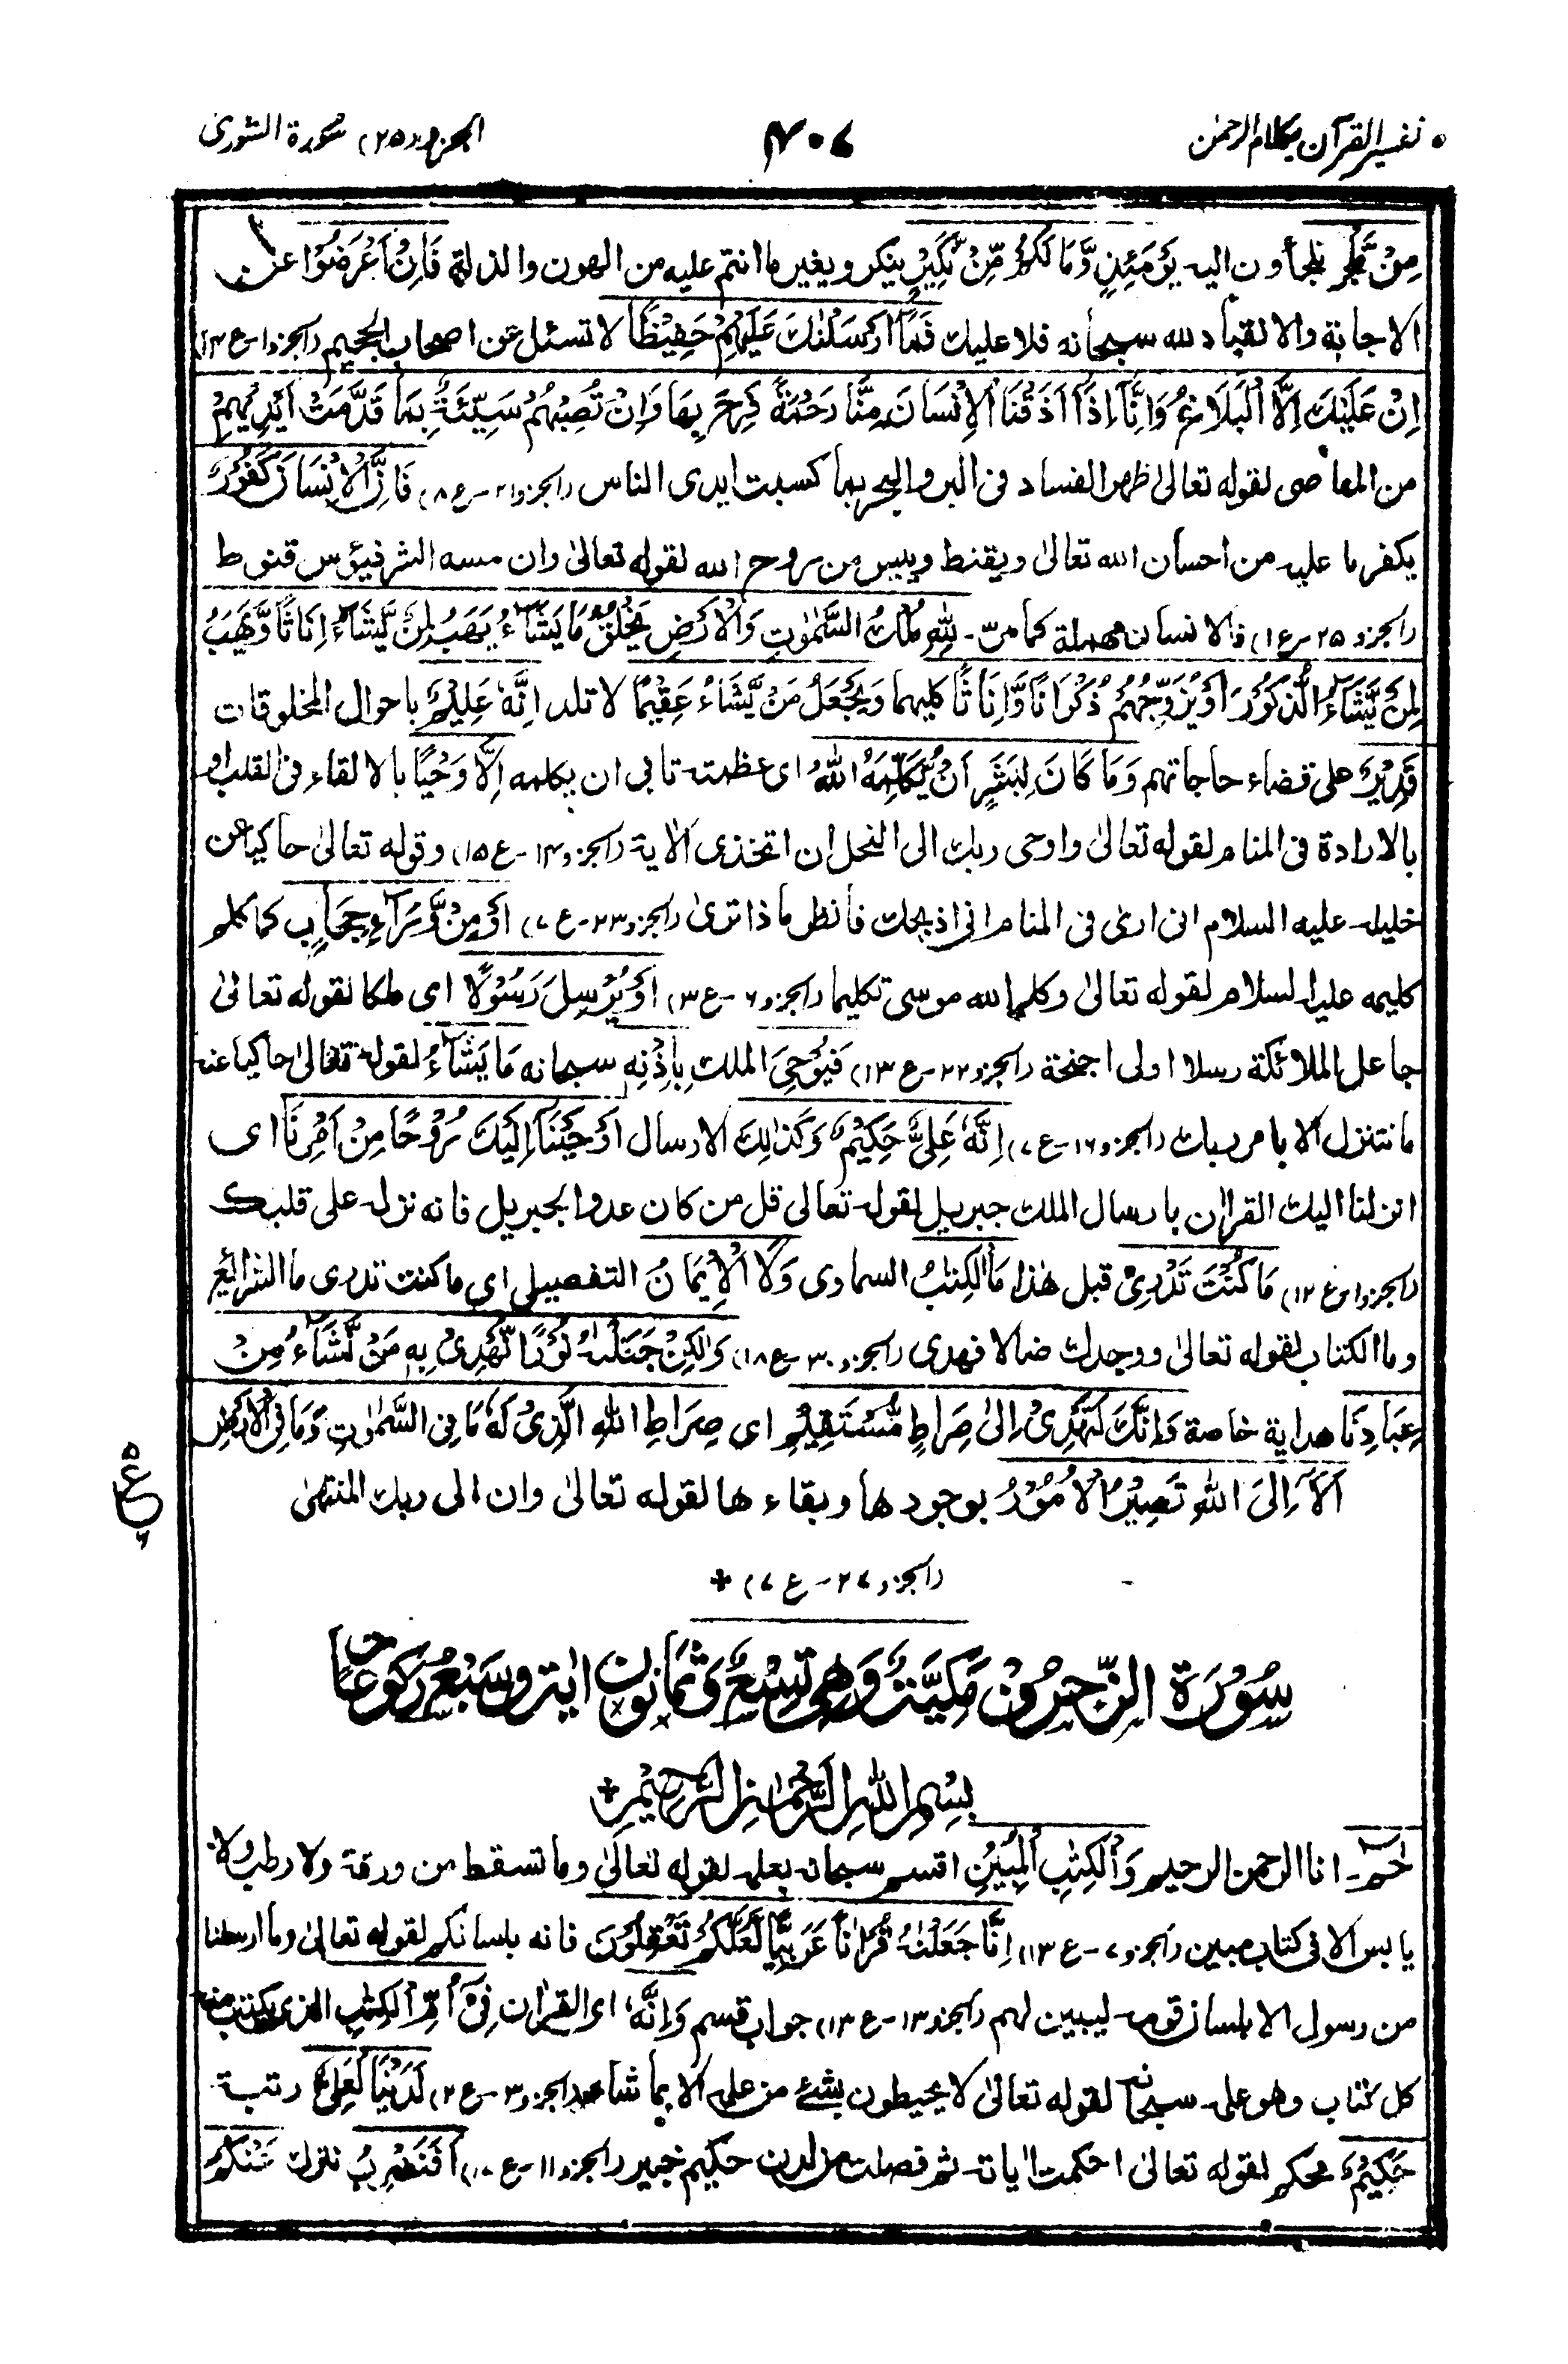 تفسیر القرآن بکلام الرحمٰن
۴۰۷
الجزء (۲۵) سُورة الشورى
مِنْ مَّلْجَاٍ تلجأون اليه يَّوْمَئِذٍ وَّمَا لَكُمْ مِّنْ نَّكِيْرٍ ينكر ويغير ما انتم عليه من الهون والذلة فَاِنْ اَعْرَضُوْا عن
الاجابة والانقياد لله سبحانه فلا عليك فَمَاۤ اَرْسَلْنٰكَ عَلَيْهِمْ حَفِيْظًا لا تسئل عن اصحاب الجحيم (الجزء ۱-ع ۱۴)
اِنْ عَلَيْكَ اِلَّا الْبَلٰغُ وَاِنَّاۤ اِذَاۤ اَذَقْنَا الْاِنْسَانَ مِنَّا رَحْمَةً فَرِحَ بِهَا وَاِنْ تُصِبْهُمْ سَيِّئَةٌۢ بِمَا قَدَّمَتْ اَيْدِيْهِمْ
من المعاصى لقوله تعالىٰ ظهر الفساد فى البر والبحر بما كسبت ايدى الناس (الجزء ۲۱-ع ۸) فَاِنَّ الْاِنْسَانَ كَفُوْرٌ
يكفر ما عليه من احسان الله تعالىٰ ويقنط وييس من روح الله لقوله تعالىٰ وان مسه الشر فيئوس قنوط
(الجزء ۲۵-ع ۱) فالانسان مهملة كما مرّ - لِلّٰهِ مُلْكُ السَّمٰوٰتِ وَالْاَرْضِ يَخْلُقُ مَا يَشَآءُ يَهَبُ لِمَنْ يَّشَآءُ اِنَاثًا وَّيَهَبُ
لِمَنْ يَّشَآءُ الذُّكُوْرَ اَوْ يُزَوِّجُهُمْ ذُكْرَانًا وَّاِنَاثًا كليهما وَيَجْعَلُ مَنْ يَّشَآءُ عَقِيْمًا لا تلد اِنَّهٗ عَلِيْمٌ باحوال المخلوقات
قَدِيْرٌ على قضاء حاجاتهم وَمَا كَانَ لِبَشَرٍ اَنْ يُّكَلِّمَهُ اللّٰهُ اى عظمته تابى ان يكلمه اِلَّا وَحْيًا بالالقاء فى القلب او
بالارادة فى المنام لقوله تعالىٰ واوحى ربك الى النحل ان اتخذى الاٰية (الجزء ۱۴-ع ۱۵) وقوله تعالىٰ حاكيا عن
خليله عليه السلام انى ارىٰ فى المنام انى اذبحك فانظر ماذا ترىٰ (الجزء ۲۳-ع ۷) اَوْ مِنْ وَّرَآءِ حِجَابٍ كما كلم
كليمه عليه السلام لقوله تعالىٰ وكلم الله موسى تكليما (الجزء ۶-ع ۳) اَوْ يُرْسِلَ رَسُوْلًا اى ملكا لقوله تعالىٰ
جاعل الملائكة رسلا اولى اجنحة (الجزء ۲۲-ع ۱۳) فَيُوْحِىَ الملك بِاِذْنِهٖ سبحانه مَا يَشَآءُ لقوله تعالىٰ حاكيا عنه
ما نتنزل الا بامر ربك (الجزء ۱۶-ع ۷) اِنَّهٗ عَلِىٌّ حَكِيْمٌ وَكَذٰلِكَ الارسال اَوْحَيْنَاۤ اِلَيْكَ رُوْحًا مِنْ اَمْرِنَا اى
انزلنا اليك القراٰن بارسال الملك جبريل لقوله تعالى قل من كان عدوا لجبريل فانه نزله على قلبك
(الجزء ۱-ع ۱۲) مَا كُنْتَ تَدْرِىْ قبل هٰذا مَا الْكِتٰبُ السماوى وَلَا الْاِيْمَانُ التفصيلى اى ما كنت تدرى ما الشرائع
وما الكتاب لقوله تعالىٰ ووجدك ضالا فهدى (الجزء ۳۰-ع ۱۸) وَلٰكِنْ جَعَلْنٰهُ نُوْرًا نَّهْدِىْ بِهٖ مَنْ نَّشَآءُ مِنْ
عِبَادِنَا هداية خاصة وَاِنَّكَ لَتَهْدِىْ اِلىٰ صِرَاطٍ مُّسْتَقِيْمٍ اى صِرَاطِ اللّٰهِ الَّذِىْ لَهٗ مَا فِى السَّمٰوٰتِ وَمَا فِى الْاَرْضِ
اَلَاۤ اِلَى اللّٰهِ تَصِيْرُ الْاُمُوْرُ بوجودها وبقاءها لقوله تعالىٰ وان الى ربك المنتهىٰ
(الجزء ۲۷-ع ۷) +
ع
سُوْرَة الزّخرُوْف مَكيَّة وَهِى تِسْعٌ وَّثَمَانُون اٰية وسَبْعُ رُكوعَاً
بِسْمِ اللّٰهِ الرَّحْمٰنِ الرَّحِيْمِ +
حٰمۤ - انا الرحمن الرحيم وَالْكِتٰبِ الْمُبِيْنِ اقسم سبحانه بعلمه لقوله تعالىٰ وما تسقط من ورقة ولا رطب ولا
يابس الا فى كتاب مبين (الجزء ۷-ع ۱۳) اِنَّا جَعَلْنٰهُ قُرْاٰنًا عَرَبِيًّا لَّعَلَّكُمْ تَعْقِلُوْنَ فانه بلسانكم لقوله تعالىٰ وما ارسلنا
من رسول الا بلسان قومه ليبين لهم (الجزء ۱۳-ع ۱۳) جواب قسم وَاِنَّهٗ اى القراٰن فِىْۤ اُمِّ الْكِتٰبِ الذى يكتتب منه
كل كتاب وهو علمه سبحانه لقوله تعالىٰ لا يحيطون بشئ من علمه الا بما شاء (الجزء ۳-ع ۲) لَدَيْنَا لَعَلِىٌّ رتبة
حَكِيْمٌ محكم لقوله تعالىٰ احكمت اٰياته ثم فصلت من لدن حكيم خبير (الجزء ۱۱-ع ۱۷) اَفَنَضْرِبُ نترك عَنْكُمُ